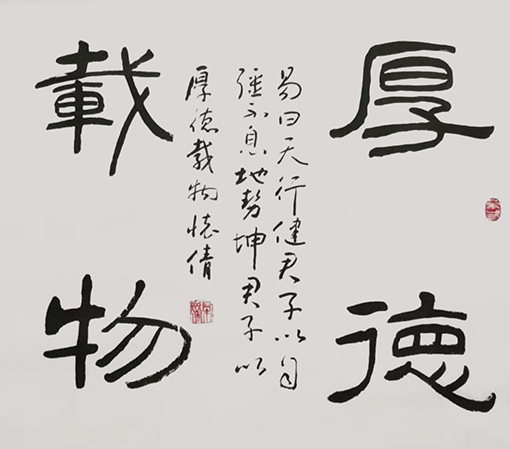 厚德
載物
易曰天行健君子以自
强不息地势坤君子以
厚德载物